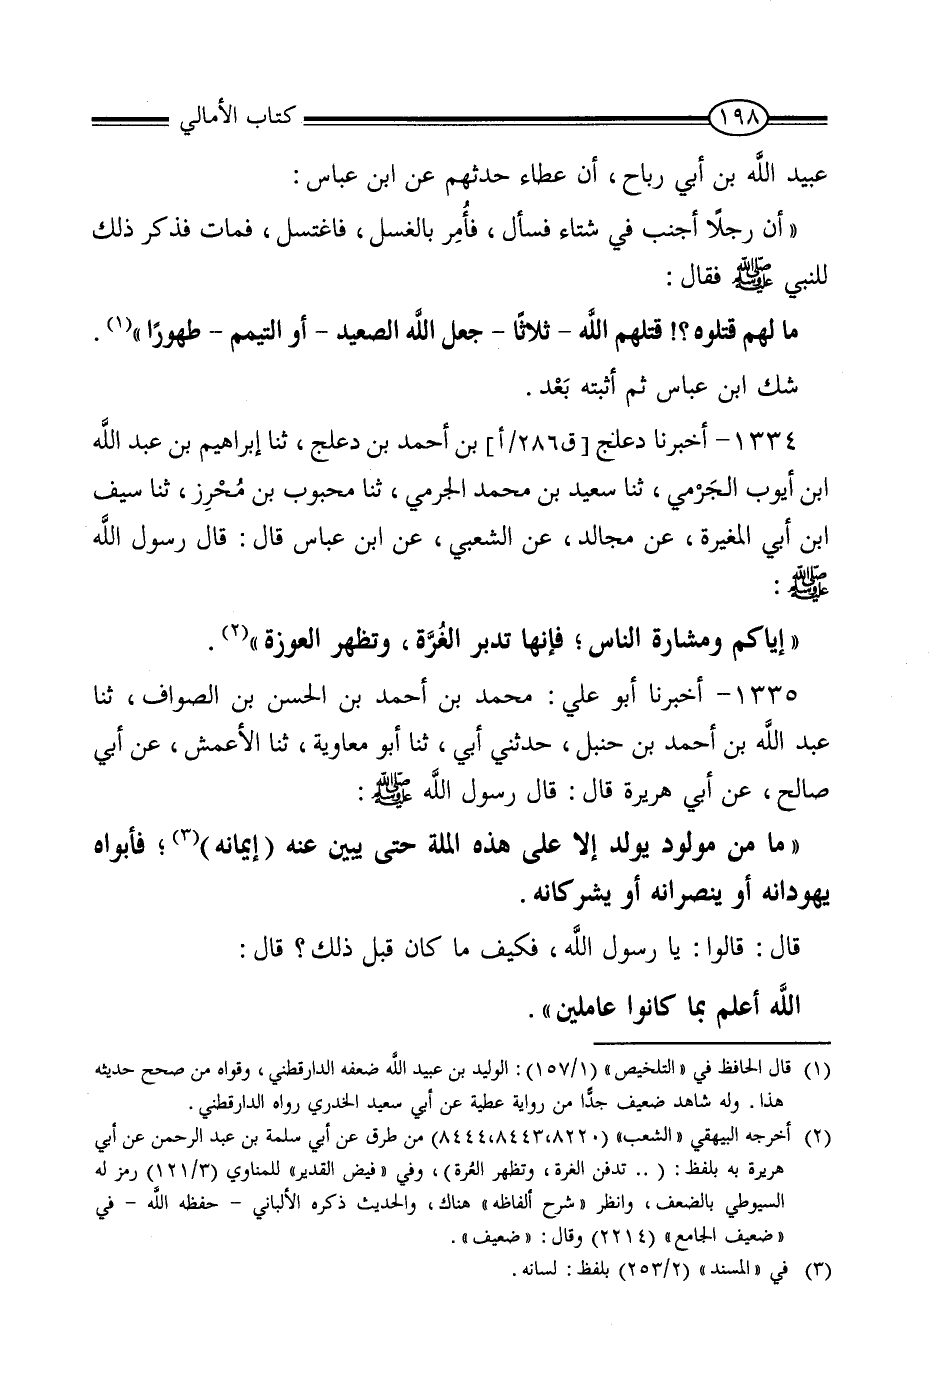 ١٩٨ كتاب الأمالي
عبيد اللَّه بن أبي رباح ، أن عطاء حدثهم عن ابن عباس :
« أن رجلًا أجنب في شتاء فسأل ، فأُمِر بالغسل ، فاغتسل ، فمات فذكر ذلك
للنبي ﷺ فقال :
ما لهم قتلوه ؟! قتلهم اللَّه - ثلاثًا - جعل اللَّه الصعيد - أو التيمم - طهورًا »(١) .
شك ابن عباس ثم أثبته بَعْد .
١٣٣٤- أخبرنا دعلج [ق٢٨٦/أ] بن أحمد بن دعلج ، ثنا إبراهيم بن عبد اللَّه
ابن أيوب الجَرْمي ، ثنا سعيد بن محمد الجرمي ، ثنا محبوب بن مُحْرِز ، ثنا سيف
ابن أبي المغيرة ، عن مجالد ، عن الشعبي ، عن ابن عباس قال : قال رسول اللَّه
ﷺ :
« إياكم ومشارة الناس ؛ فإنها تدبر الغُرَّة ، وتظهر العوزة »(٢) .
١٣٣٥- أخبرنا أبو علي : محمد بن أحمد بن الحسن بن الصواف ، ثنا
عبد اللَّه بن أحمد بن حنبل ، حدثني أبي ، ثنا أبو معاوية ، ثنا الأعمش ، عن أبي
صالح ، عن أبي هريرة قال : قال رسول اللَّه ﷺ :
« ما من مولود يولد إلا على هذه الملة حتى يبين عنه (إيمانه)(٣) ؛ فأبواه
يهودانه أو ينصرانه أو يشركانه .
قال : قالوا : يا رسول اللَّه ، فكيف ما كان قبل ذلك ؟ قال :
اللَّه أعلم بما كانوا عاملين » .
(١) قال الحافظ في « التلخيص » (١/١٥٧) : الوليد بن عبيد اللَّه ضعفه الدارقطني ، وقواه من صحح حديثه
هذا . وله شاهد ضعيف جدًّا من رواية عطية عن أبي سعيد الخدري رواه الدارقطني .
(٢) أخرجه البيهقي « الشعب » (٨٢٢٠،٨٤٤٣،٨٤٤٤) من طرق عن أبي سلمة بن عبد الرحمن عن أبي
هريرة به بلفظ : ( .. تدفن الغرة ، وتظهر العُرة) ، وفي « فيض القدير » للمناوي (٣/١٢١) رمز له
السيوطي بالضعف ، وانظر « شرح ألفاظه » هناك ، والحديث ذكره الألباني - حفظه اللَّه - في
« ضعيف الجامع » (٢٢١٤) وقال : « ضعيف » .
(٣) في « المسند » (٢/٢٥٣) بلفظ : لسانه .